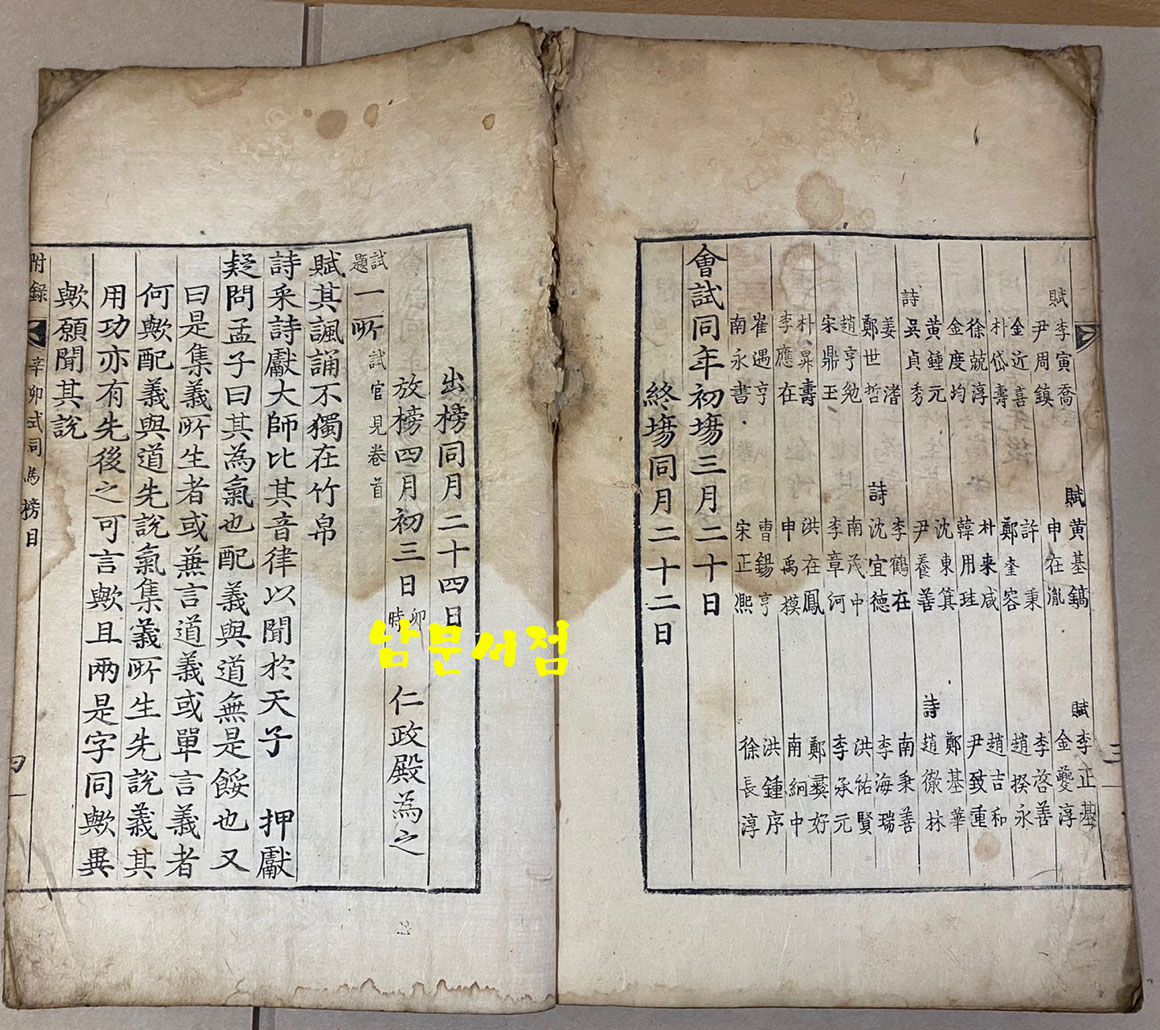 賦 李寅喬
尹周鎮
金近喜
朴岱壽
徐兢淳
金度均
黃鍾元
詩 吳貞秀
姜濬
鄭世哲
趙亨勉
宋鼎玉
朴昇壽
李應在
崔遇亨
南永書
賦 黃基鎬
申在胤
許秉
鄭奎容
朴来咸
韓用珪
沈東箕
尹養善
詩 李鶴在
沈宜德
南茂中
李章河
洪在鳳
申禹模
曹錫亨
宋正凞
賦 李正基
金夔淳
李啓善
趙揆永
趙吉和
尹致重
鄭基華
詩 趙徽林
南秉善
李海瑞
洪祐賢
李承元
鄭好
南絅中
洪鍾序
徐長淳
會試同年初場三月二十日
終場同月二十二日
三
出榜同月二十四日
放榜四月初三日卯時 仁政殿為之
試題 一所 試官見卷首
賦其諷誦不獨在竹帛
詩采詩獻大師比其音律以聞於天子 押獻
疑問孟子曰其為氣也配義與道無是餒也又
曰是集義所生者或兼言道義或單言義者
何歟配義與道先說氣集義所生先說義其
用功亦有先後之可言歟且兩是字同歟異
歟願聞其說
附錄 辛卯式司馬榜目
四
남문서점